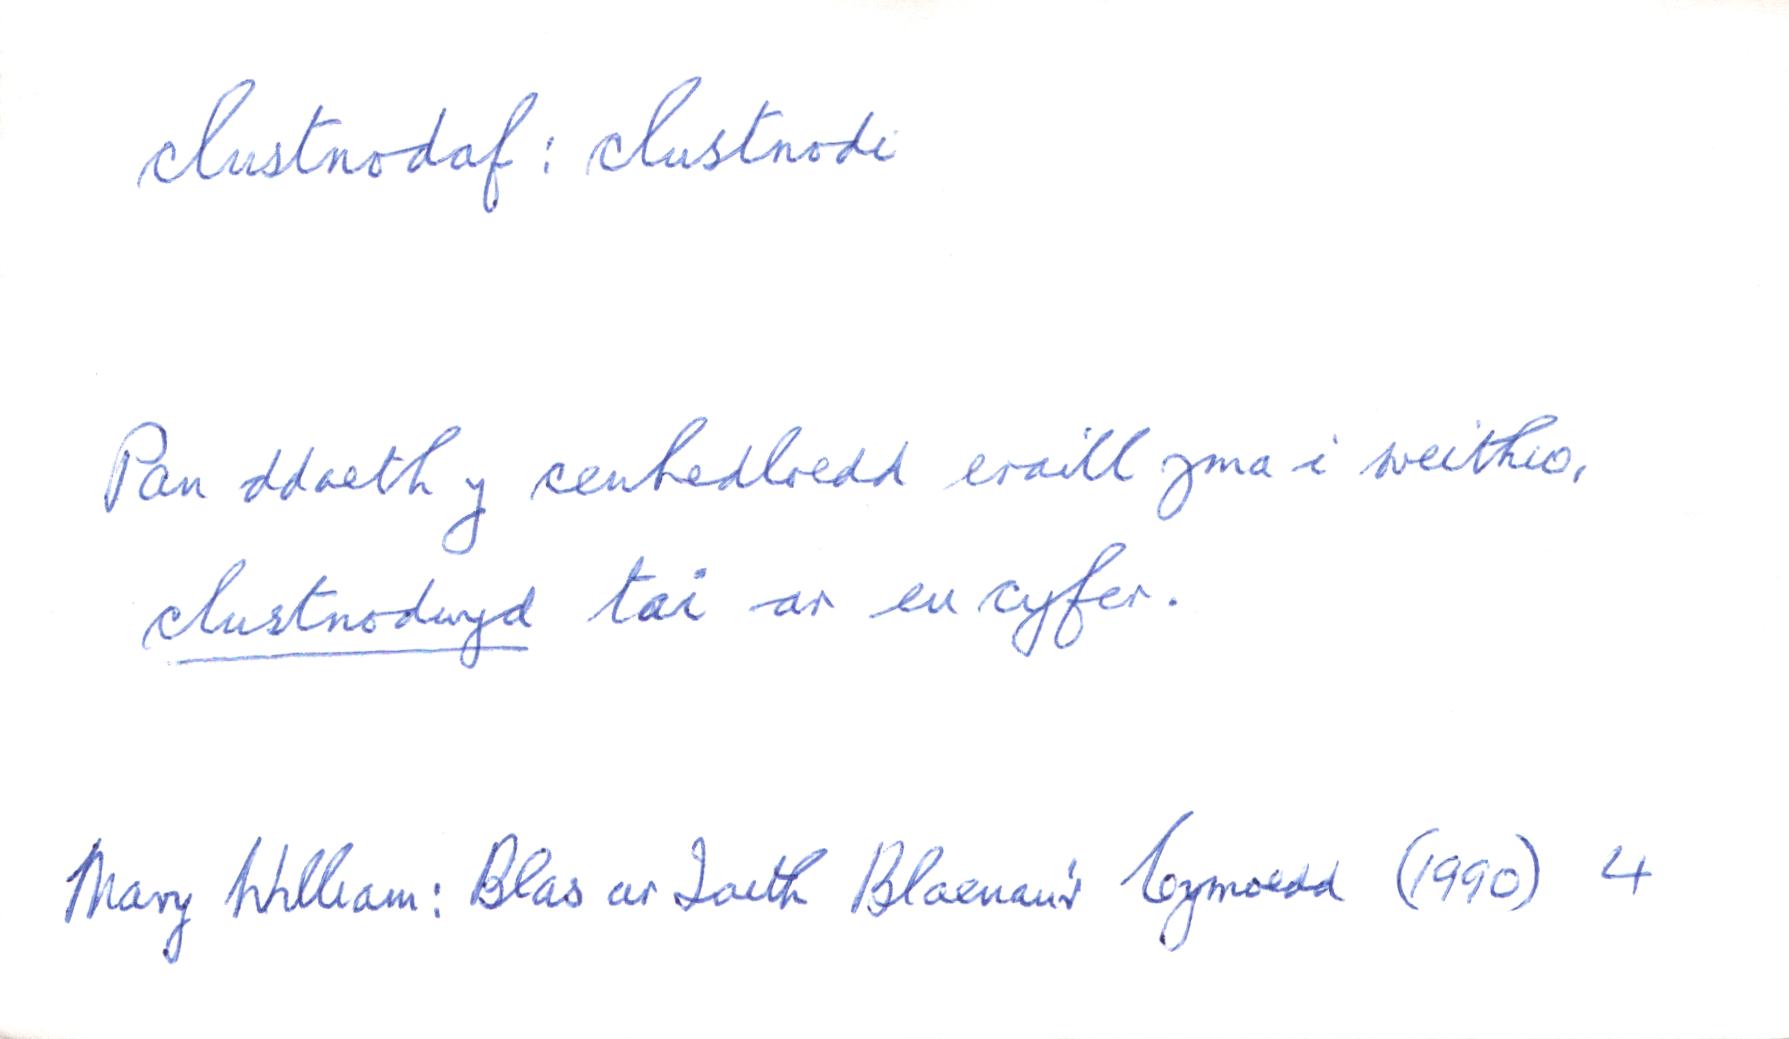 clustnodaf : clustnodi
Pan ddaeth y cenhedloedd eraill yma i weithio,
clustnodwyd tai ar eu cyfer.
Mary William: Blas ar Iaith Blaenau'r Cymoedd (1990) 4